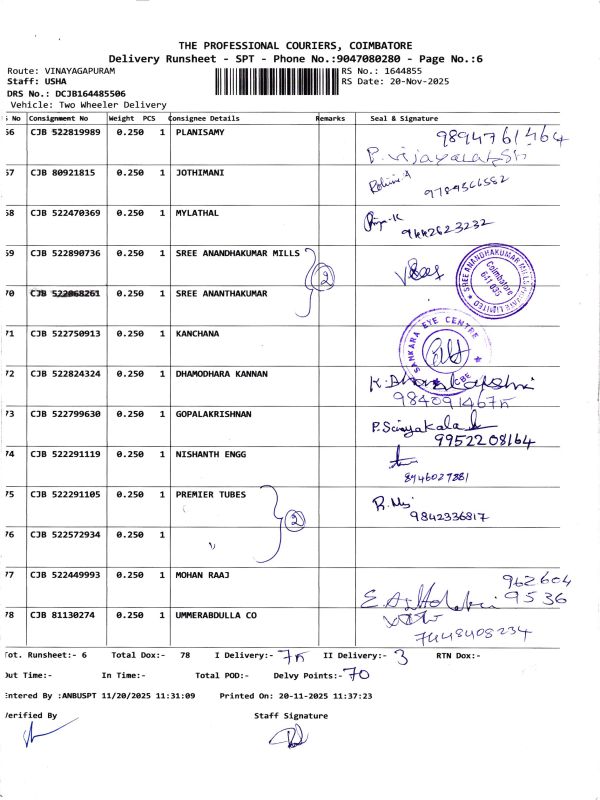 THE PROFESSIONAL COURIERS, COIMBATORE
Delivery Runsheet - SPT - Phone No.:9047080280 - Page No.:6
Route: VINAYAGAPURAM RS No.: 1644855
Staff: USHA RS Date: 20-Nov-2025
DRS No.: DCJB164485506
Vehicle: Two Wheeler Delivery
No Consignment No Weight PCS Consignee Details Remarks Seal & Signature
66 CJB 522819989 0.250 1 PLANISAMY 9894761464
P. Vijayalakshi
67 CJB 80921815 0.250 1 JOTHIMANI 9789566582
68 CJB 522470369 0.250 1 MYLATHAL Priya-K 9442623232
69 CJB 522890736 0.250 1 SREE ANANDHAKUMAR MILLS
2
SREE ANANDHAKUMAR MILLS PRIVATE LIMITED
Coimbatore
641 035
70 CJB 522868261 0.250 1 SREE ANANTHAKUMAR
71 CJB 522750913 0.250 1 KANCHANA
SANKARA EYE CENTRE
CBE
72 CJB 522824324 0.250 1 DHAMODHARA KANNAN
73 CJB 522799630 0.250 1 GOPALAKRISHNAN
9952208164
74 CJB 522291119 0.250 1 NISHANTH ENGG
8946027881
75 CJB 522291105 0.250 1 PREMIER TUBES
2
9842336817
76 CJB 522572934 0.250 1
77 CJB 522449993 0.250 1 MOHAN RAAJ 962604
9536
78 CJB 81130274 0.250 1 UMMERABDULLA CO
7448408234
Tot. Runsheet:- 6 Total Dox:- 78 I Delivery:- 75 II Delivery:- 3 RTN Dox:-
Out Time:- In Time:- Total POD:- Delvy Points:- 70
Entered By :ANBUSPT 11/20/2025 11:31:09 Printed On: 20-11-2025 11:37:23
Verified By Staff Signature